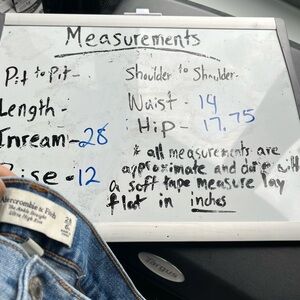 Measurements
Pit to Pit -
Shoulder to Shoulder -
Length -
Waist - 14
Inream - 28
Hip - 17.75
Rise - 12
* all measurements are
approximate and done with
a soft tape measure lay
flat in inches
Abercrombie & Fitch
The Ankle Straight
Ultra High Rise
Targus